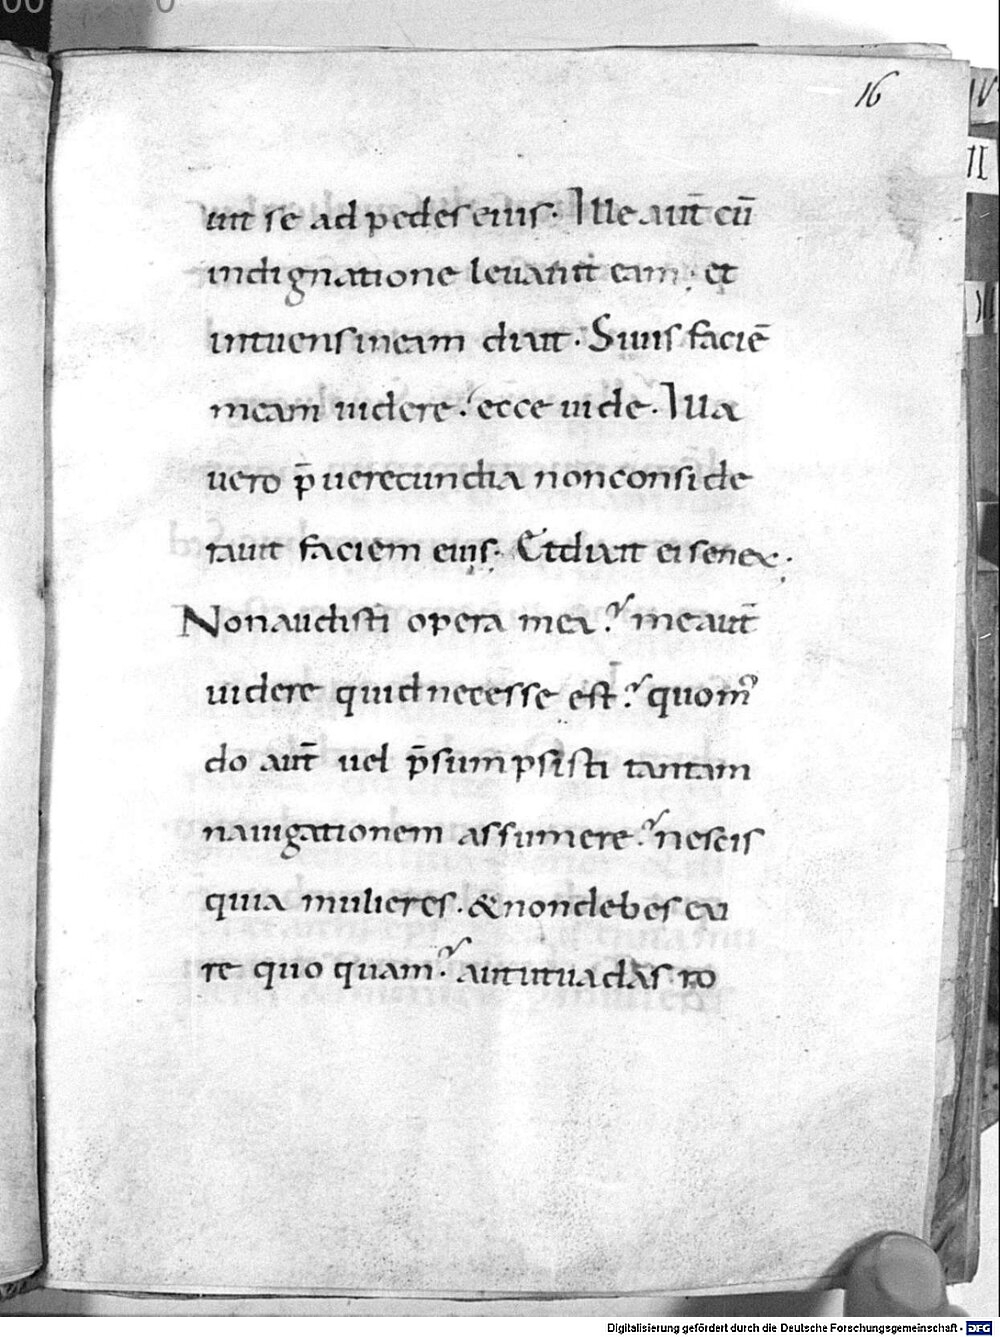 16
uit se ad pedes eius. Ille aut̄ cū
indignatione leuauit eam; et
intuens in eam dixit. Siuis faciē
meam uidere. ecce uide. Illa
uero p̄ uerecundia non conside
rauit faciem eius. Et dixit ei senex;
Non audisti opera mea? me aut̄
uidere quid necesse est? quom
do aut̄ uel p̄sumpsisti tantam
nauigationem assumere? nescis
quia mulier es. & non debes exi
re quo quam? aut ut uadas ro
Digitalisierung gefördert durch die Deutsche Forschungsgemeinschaft - DFG